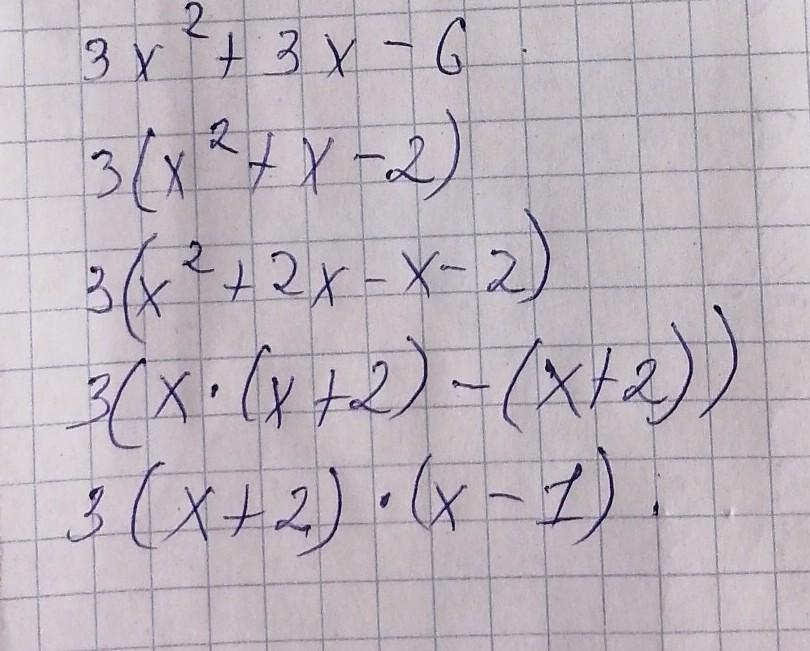 3x² + 3x - 6
3(x² + x - 2)
3(x² + 2x - x - 2)
3(x · (x + 2) - (x + 2))
3(x + 2) · (x - 1).